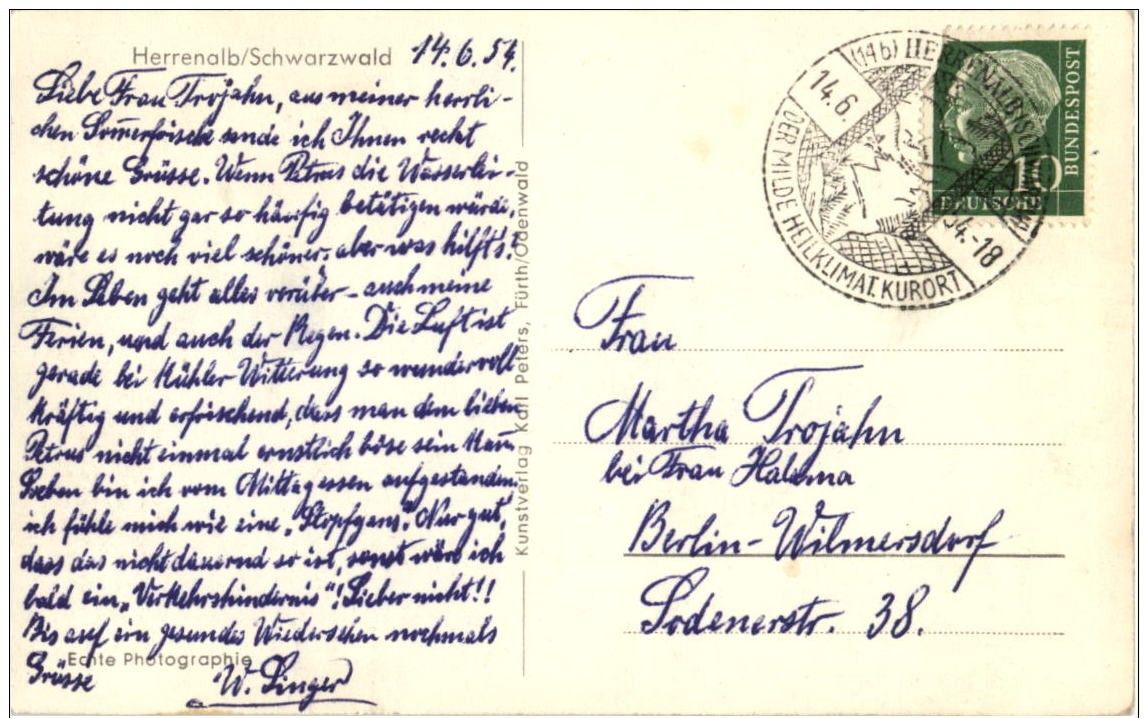 Herrenalb/Schwarzwald
14.6.54.
Liebe Frau Trojahn, aus meiner herrli-
chen Som̄erfrische sende ich Ihnen recht
schöne Grüsse. Wenn Petrus die Wasserlei-
tung nicht gar so häufig betätigen würde,
wäre es noch viel schöner, aber was hilft's?
Im Leben geht alles vorüber - auch meine
Ferien, und auch der Regen. Die Luft ist
gerade bei kühler Witterung so wundervoll
kräftig und erfrischend, dass man dem lieben
Petrus nicht einmal ernstlich böse sein kan̄.
Soeben bin ich vom Mittagessen aufgestanden.
ich fühle mich wie eine „Stopfgans". Nur gut,
dass das nicht dauernd so ist, sonst wäre ich
bald ein „Verkehrshindernis"! Lieber nicht!!
Bis auf ein gesundes Wiedersehen nochmals
Grüsse
W. Singer
Echte Photographie
Kunstverlag Karl Peters, Fürth/Odenwald
(14b) HERRENALB
14.6.
54.-18
DER MILDE HEILKLIMAT. KURORT
10
DEUTSCHE
BUNDESPOST
Frau
Martha Trojahn
bei Frau
Berlin-Wilmersdorf
Sodenerstr. 38.